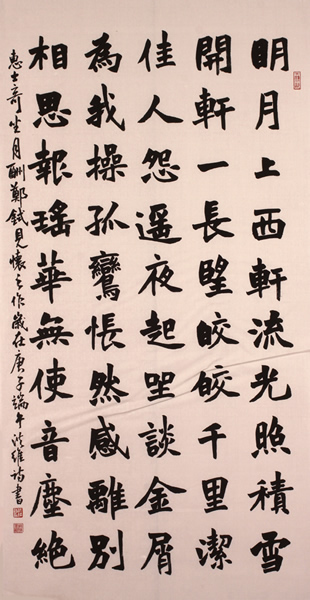 眀月上西軒流光照積雪
開軒一長望皎皎千里潔
佳人怨遥夜起坐談金屑
為我操孤鸞悵然感離別
相思報瑶華無使音塵絕
惠士奇坐月酬鄭鉽見懷之作歲在庚子端午維書